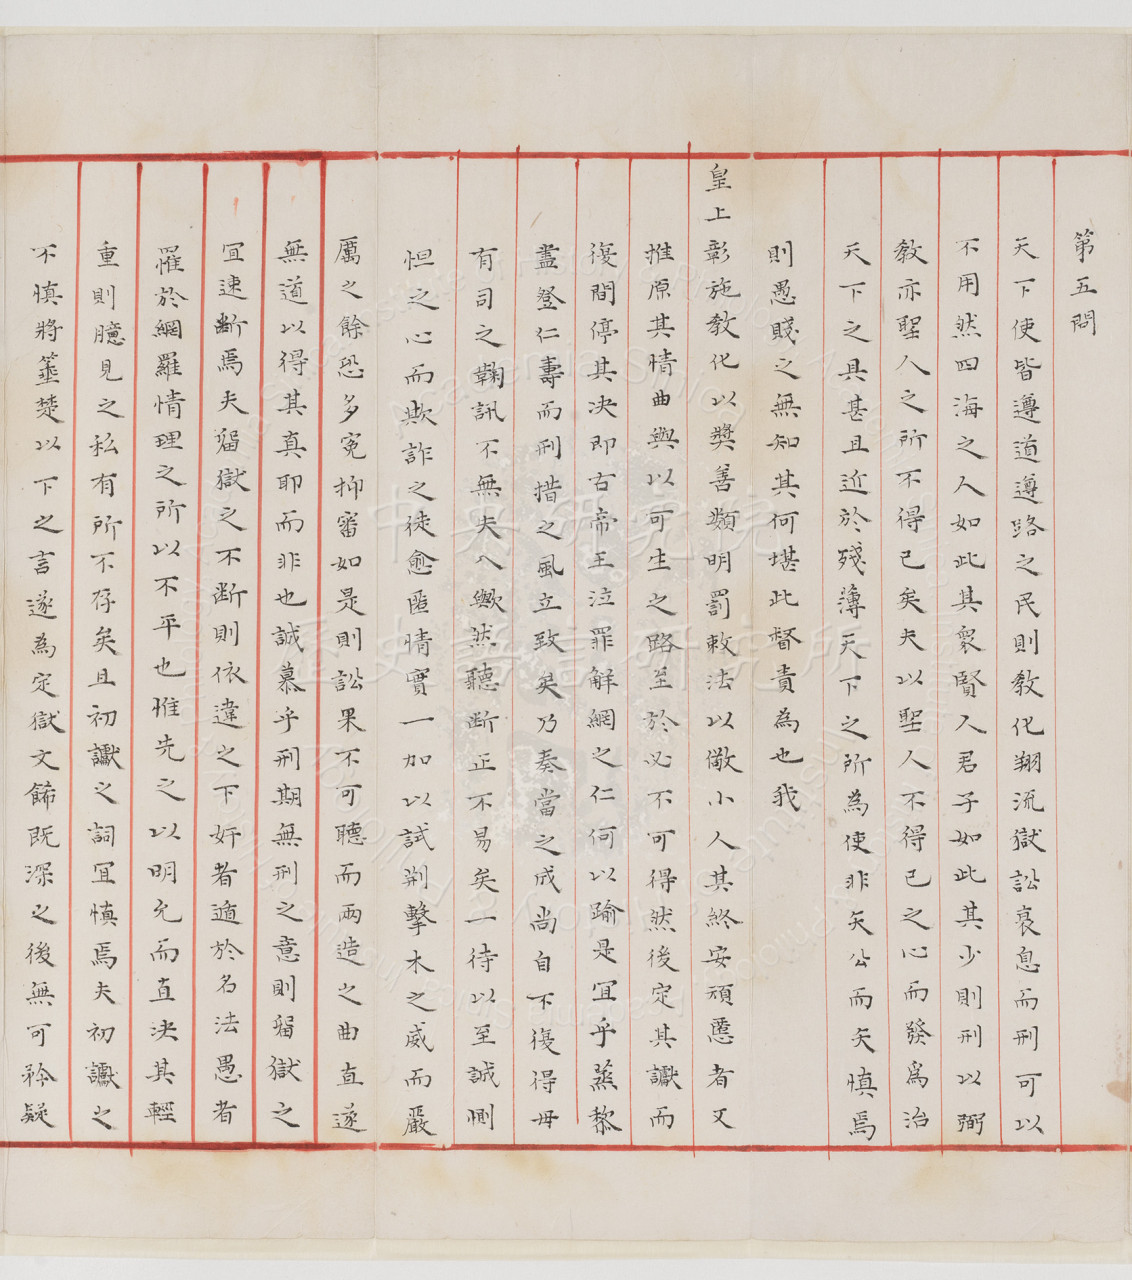 第五問
天下使皆遵道遵路之民則教化翔流獄訟衰息而刑可以
不用然四海之人如此其衆賢人君子如此其少則刑以弼
教亦聖人之所不得已矣夫以聖人不得已之心而發爲治
天下之具甚且近於殘薄天下之所為使非矢公而矢慎焉
則愚賤之無知其何堪此督責為也我
皇上彰施教化以獎善類明罰敕法以儆小人其終安頑慝者又
推原其情曲與以可生之路至於必不可得然後定其讞而
復間停其決即古帝王泣罪解網之仁何以踰是宜乎蒸黎
盡登仁壽而刑措之風立致矣乃奏當之成尚自不復得毋
有司之鞠訊不無失入歟然聽断正不易矣一待以至誠惻
怛之心而欺詐之徒愈匿情實一加以試荆擊木之威而嚴
厲之餘恐多寃抑審如是則訟果不可聽而兩造之曲直遂
無道以得其真耶而非也誠慕乎刑期無刑之意則留獄之
宜速断焉夫留獄之不断則依違之下奸者遁於名法愚者
罹於網羅情理之所以不平也惟先之以明允而直決其輕
重則臆見之私有所不存矣且初讞之詞宜慎焉夫初讞之
不慎將箠楚以下之言遂為定獄文飾既深之後無可矜疑
中央研究院
歷史語言研究所